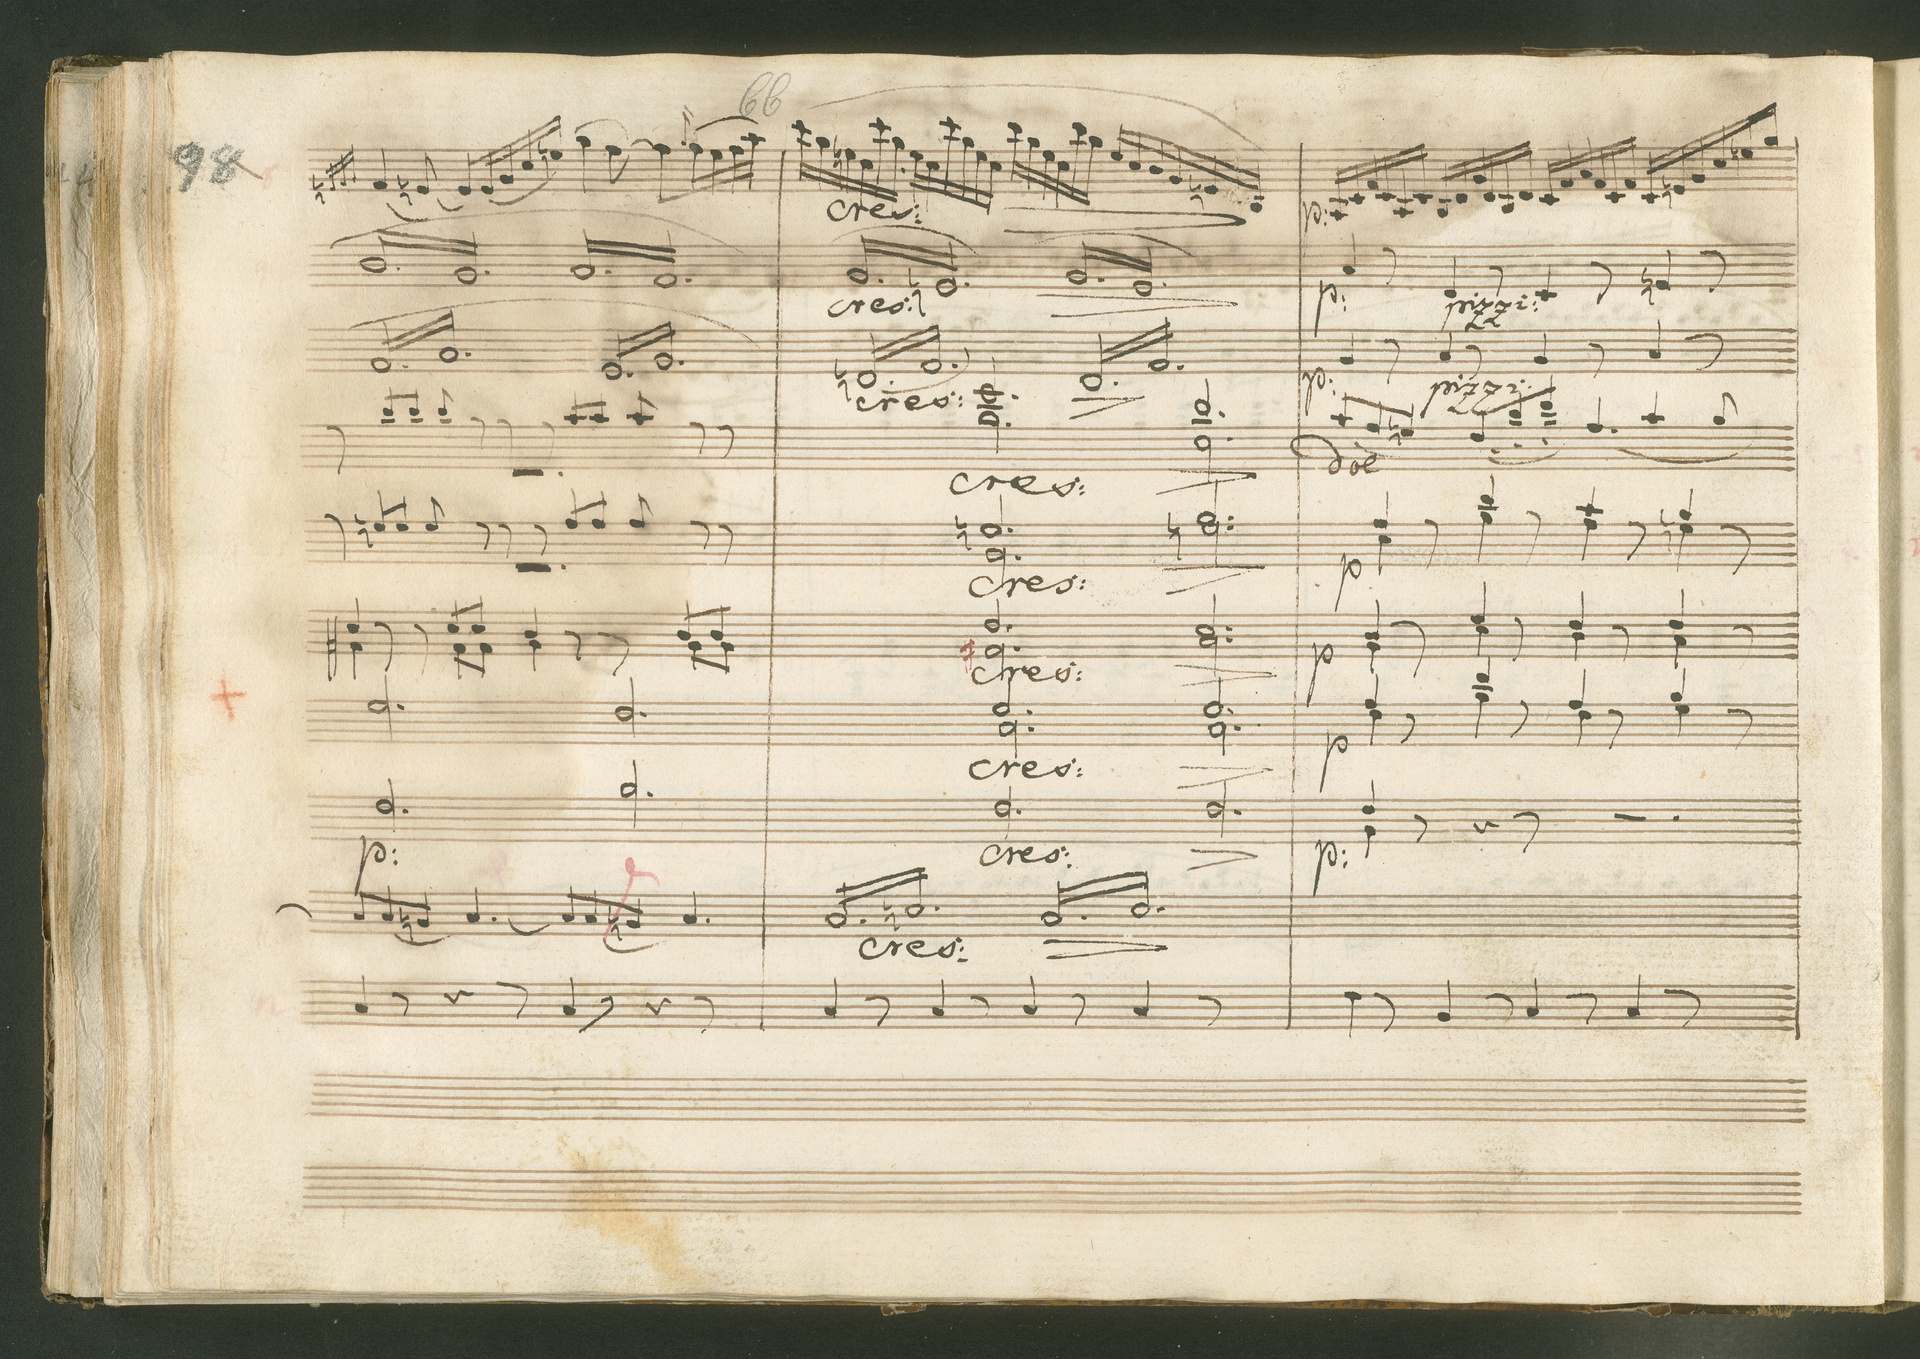 66
98
cres:
p:
cres:
p:
pizzi:
cres:
p:
pizzi:
cres:
dol
cres:
p
cres:
p
cres:
p
p:
cres:
p:
cres: